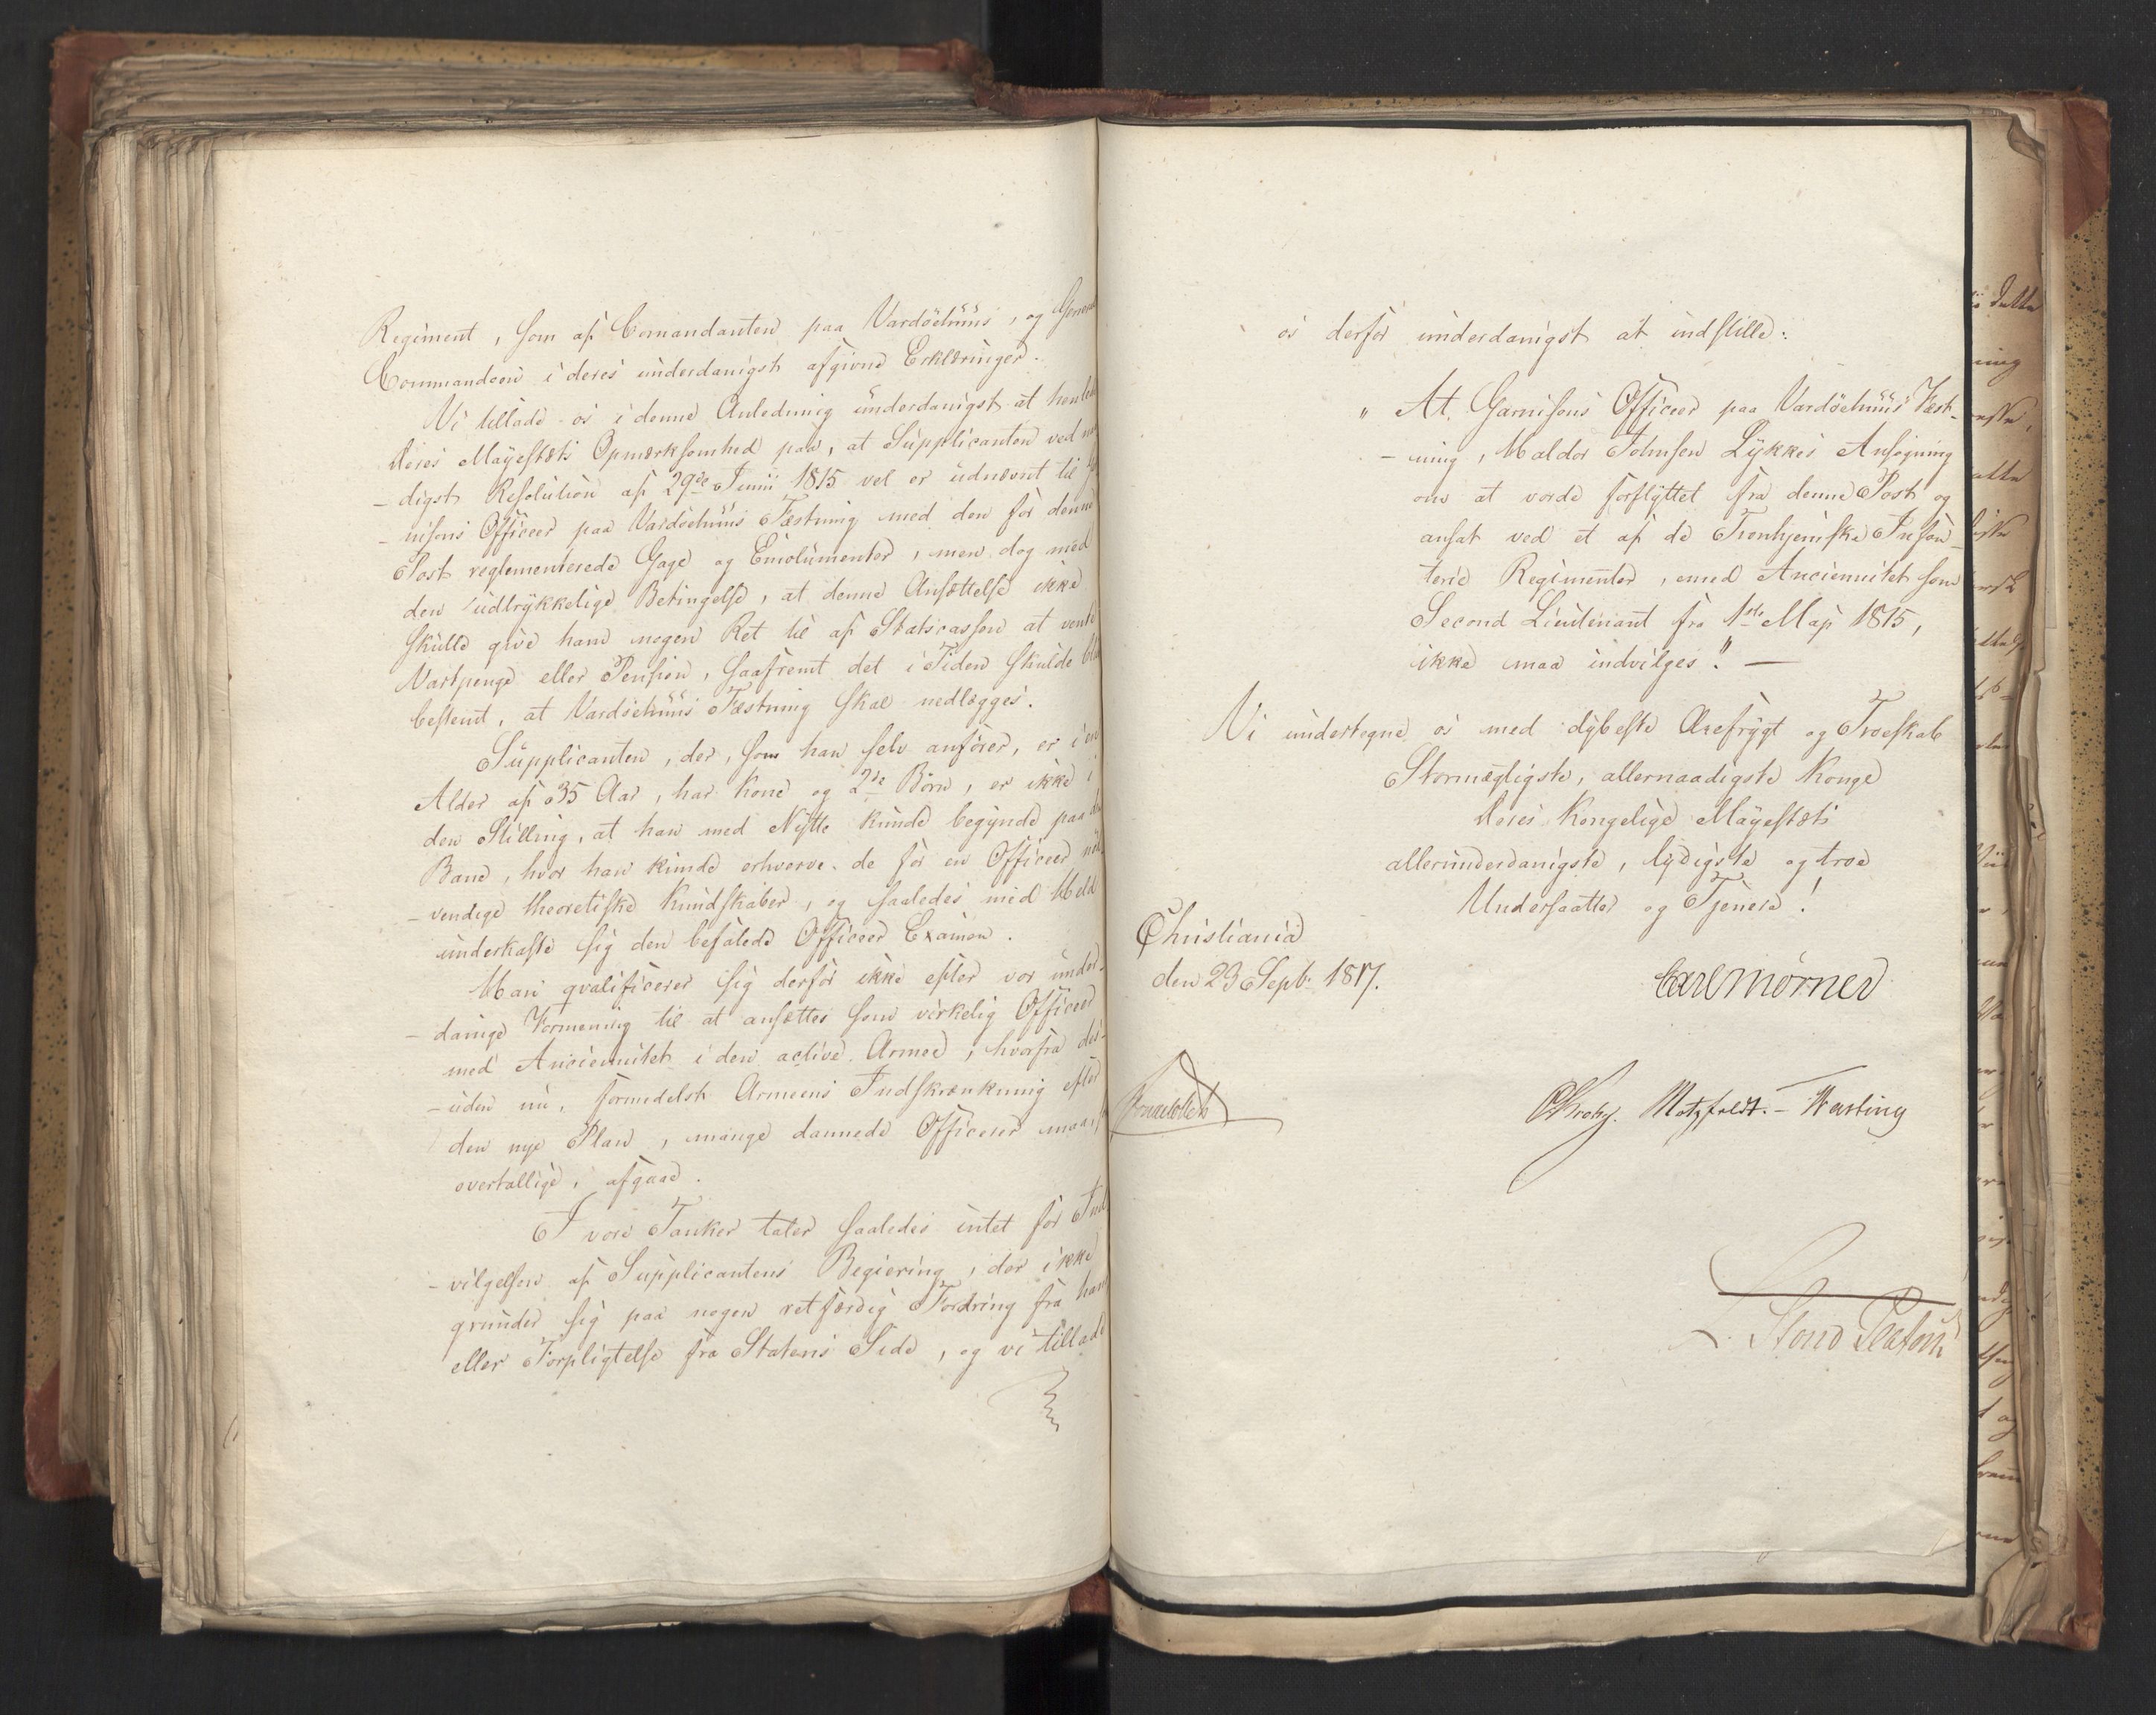 Regiment, som af Comandanten paa Vardøehuus, og General
Commandoen i deres underdanigst afgivne Erklæringer.
Vi tillade os i denne Anledning underdanigst at henlede
Deres Mayestæts Opmærksomhed paa, at Supplicanten ved naa-
-digst Resolution af 29de Junii 1815 vel er udnævnt til Gar
-nisons Officeer paa Vardøehuus Fæstning med den for denne
Post reglementerede Gage og Emolumenter, men dog med
den udtrykkelige Betingelse, at denne Ansættelse ikke
skulle give ham nogen Ret til af Statscassen at vente
Vartpenge eller Pension, saafremt det i Tiden skulde blive
bestemt, at Vardöehuus Fæstning skal nedlægges.
Supplicanten, der, som han selv anfører, er i en
Alder af 35 Aar, har Kone og 2de Børn, er ikke i
den Stilling, at han med Nytte kunde begynde paa den
Bane, hvor han kunde erhverve de for en Officeer nöd
-vendige theoretiske Kundskaber, og saaledes med Held
underkaste sig den befalede Officeer Examen.
Han qvalificerer sig derfor ikke efter vor under-
-danige Formening til at ansættes som virkelig Officeer
med Anciennitet i den active Armee, hvorfra des-
-uden nu, formedelst Armeens Indskrænkning efter
den nye Plan, mange dannede Officerer maa, som
overtallige, afgaae.
I vore Tanker taler saaledes intet for Ind
-vilgelsen af Supplicantens Begiering, der ikke
grunder sig paa nogen retfærdig Fordring fra ham,
eller Forpligtelse fra Statens Side, og vi tillade
os derfor underdanigst at indstille:
" At Garnisons Officeer paa Vardöehuus Fæst-
-ning, Haldor Johnsen Lykkes Ansøgning
om at vorde forflyttet fra denne Post og
ansat ved et af de Tronhjemske Infan-
terie Regimenter, med Anciennitet som
Second Lieutenant fra 1ste Maj 1815,
ikke maa indvilges." —
Vi undertegne os med dybeste Ærefrygt og Troeskab
Stormægtigste, allernaadigste Konge
Deres Kongelige Mayestæts
allerunderdanigste, lydigste og troe
Undersaatter og Tjenere!
Christiania
den 23 Septr. 1817.
Carl Mörner
Krohg. Motzfeldt. - Hasting
L. Stoud Platou